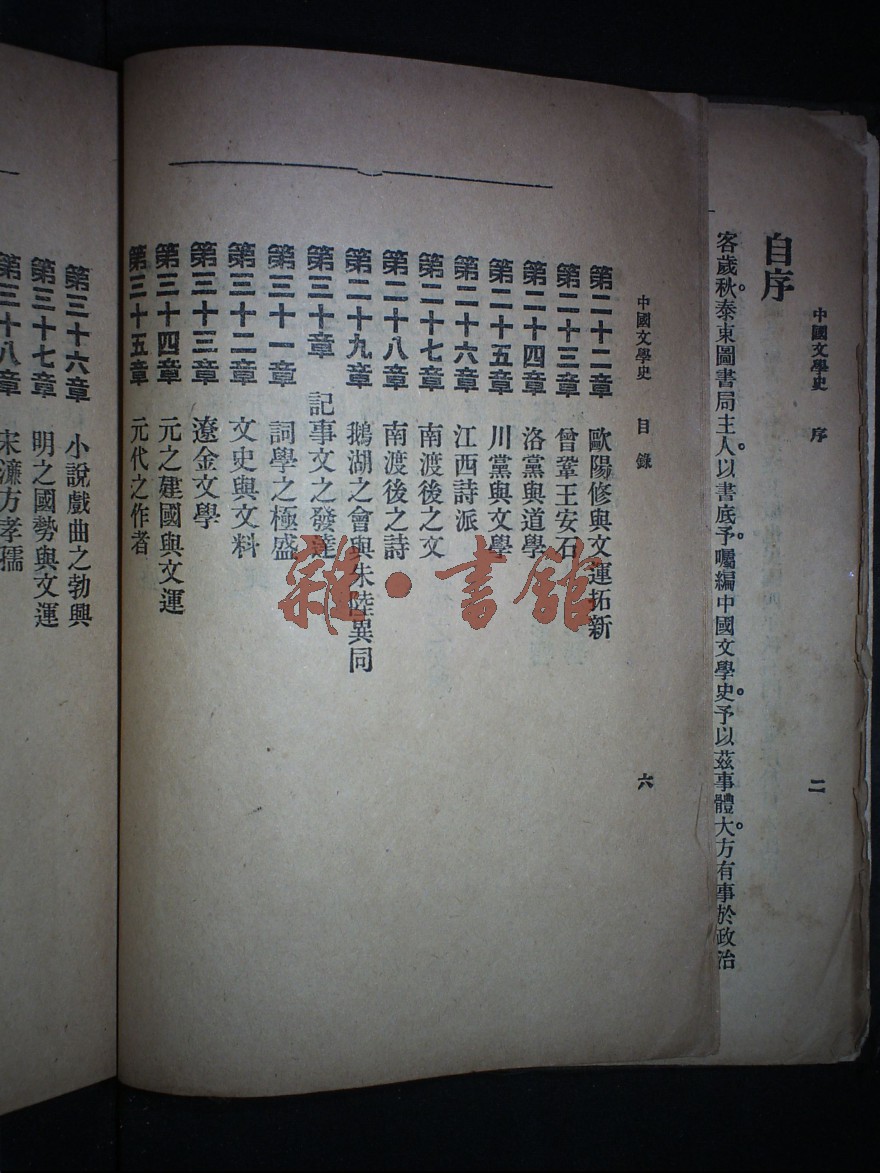 中國文學史 序 二
自序
客歲秋。泰東圖書局主人。以書底予。囑編中國文學史。予以茲事體大。方有事於政治
中國文學史 目錄 六
第二十二章 歐陽修與文運拓新
第二十三章 曾鞏王安石
第二十四章 洛黨與道學
第二十五章 川黨與文學
第二十六章 江西詩派
第二十七章 南渡後之文
第二十八章 南渡後之詩
第二十九章 鵝湖之會與朱陸異同
第三十章 記事文之發達
第三十一章 詞學之極盛
第三十二章 文史與文料
第三十三章 遼金文學
第三十四章 元之建國與文運
第三十五章 元代之作者
第三十六章 小說戲曲之勃興
第三十七章 明之國勢與文運
第三十八章 宋濂方孝孺
雜·書館